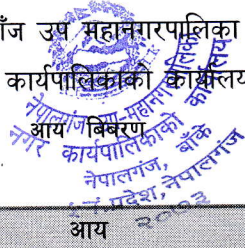 ँज उप महानगरपालिका
कार्यपालिकाको कार्यालय
आय बिबरण
नेपालगंज उप-महानगरपालिका
नगर कार्यपालिकाको कार्यालय
नेपालगंज, बाँके
प्रदेश, नेपालगंज
२०७३
आय